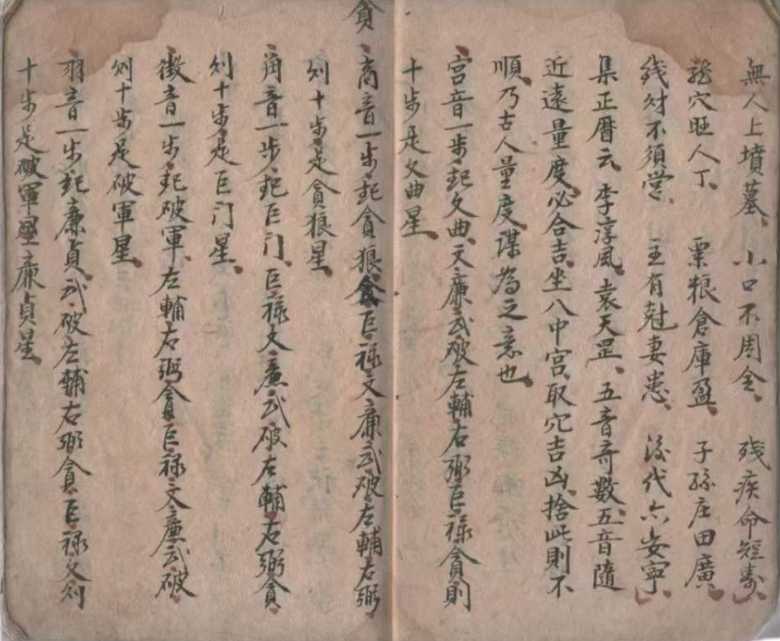 無人上墳墓 小口不周全 残疾命短壽
龍穴旺人丁 粟粮倉庫盈 子孫庄田廣
钱財不須営 主有尅妻患 後代六安寧
集正曆云李淳風袁天罡五音奇數五音隨
近遠量度必合吉坐八中宮取穴吉凶捨此則不
順乃古人量度謀為之意也
宮音一步起文曲文廉武破左輔右弼巨禄貪則
十步是文曲星
商音一步起貪狼貪巨禄文廉武破左輔右弼
貪
则十步是貪狼星
角音一步起巨门巨禄文廉武破左輔右弼貪
则十步是巨门星
徵音一步起破軍左輔右弼貪巨禄文廉武破
则十步是破軍星
羽音一步起廉貞武破左輔右弼貪巨禄文则
十步是破軍星廉貞星